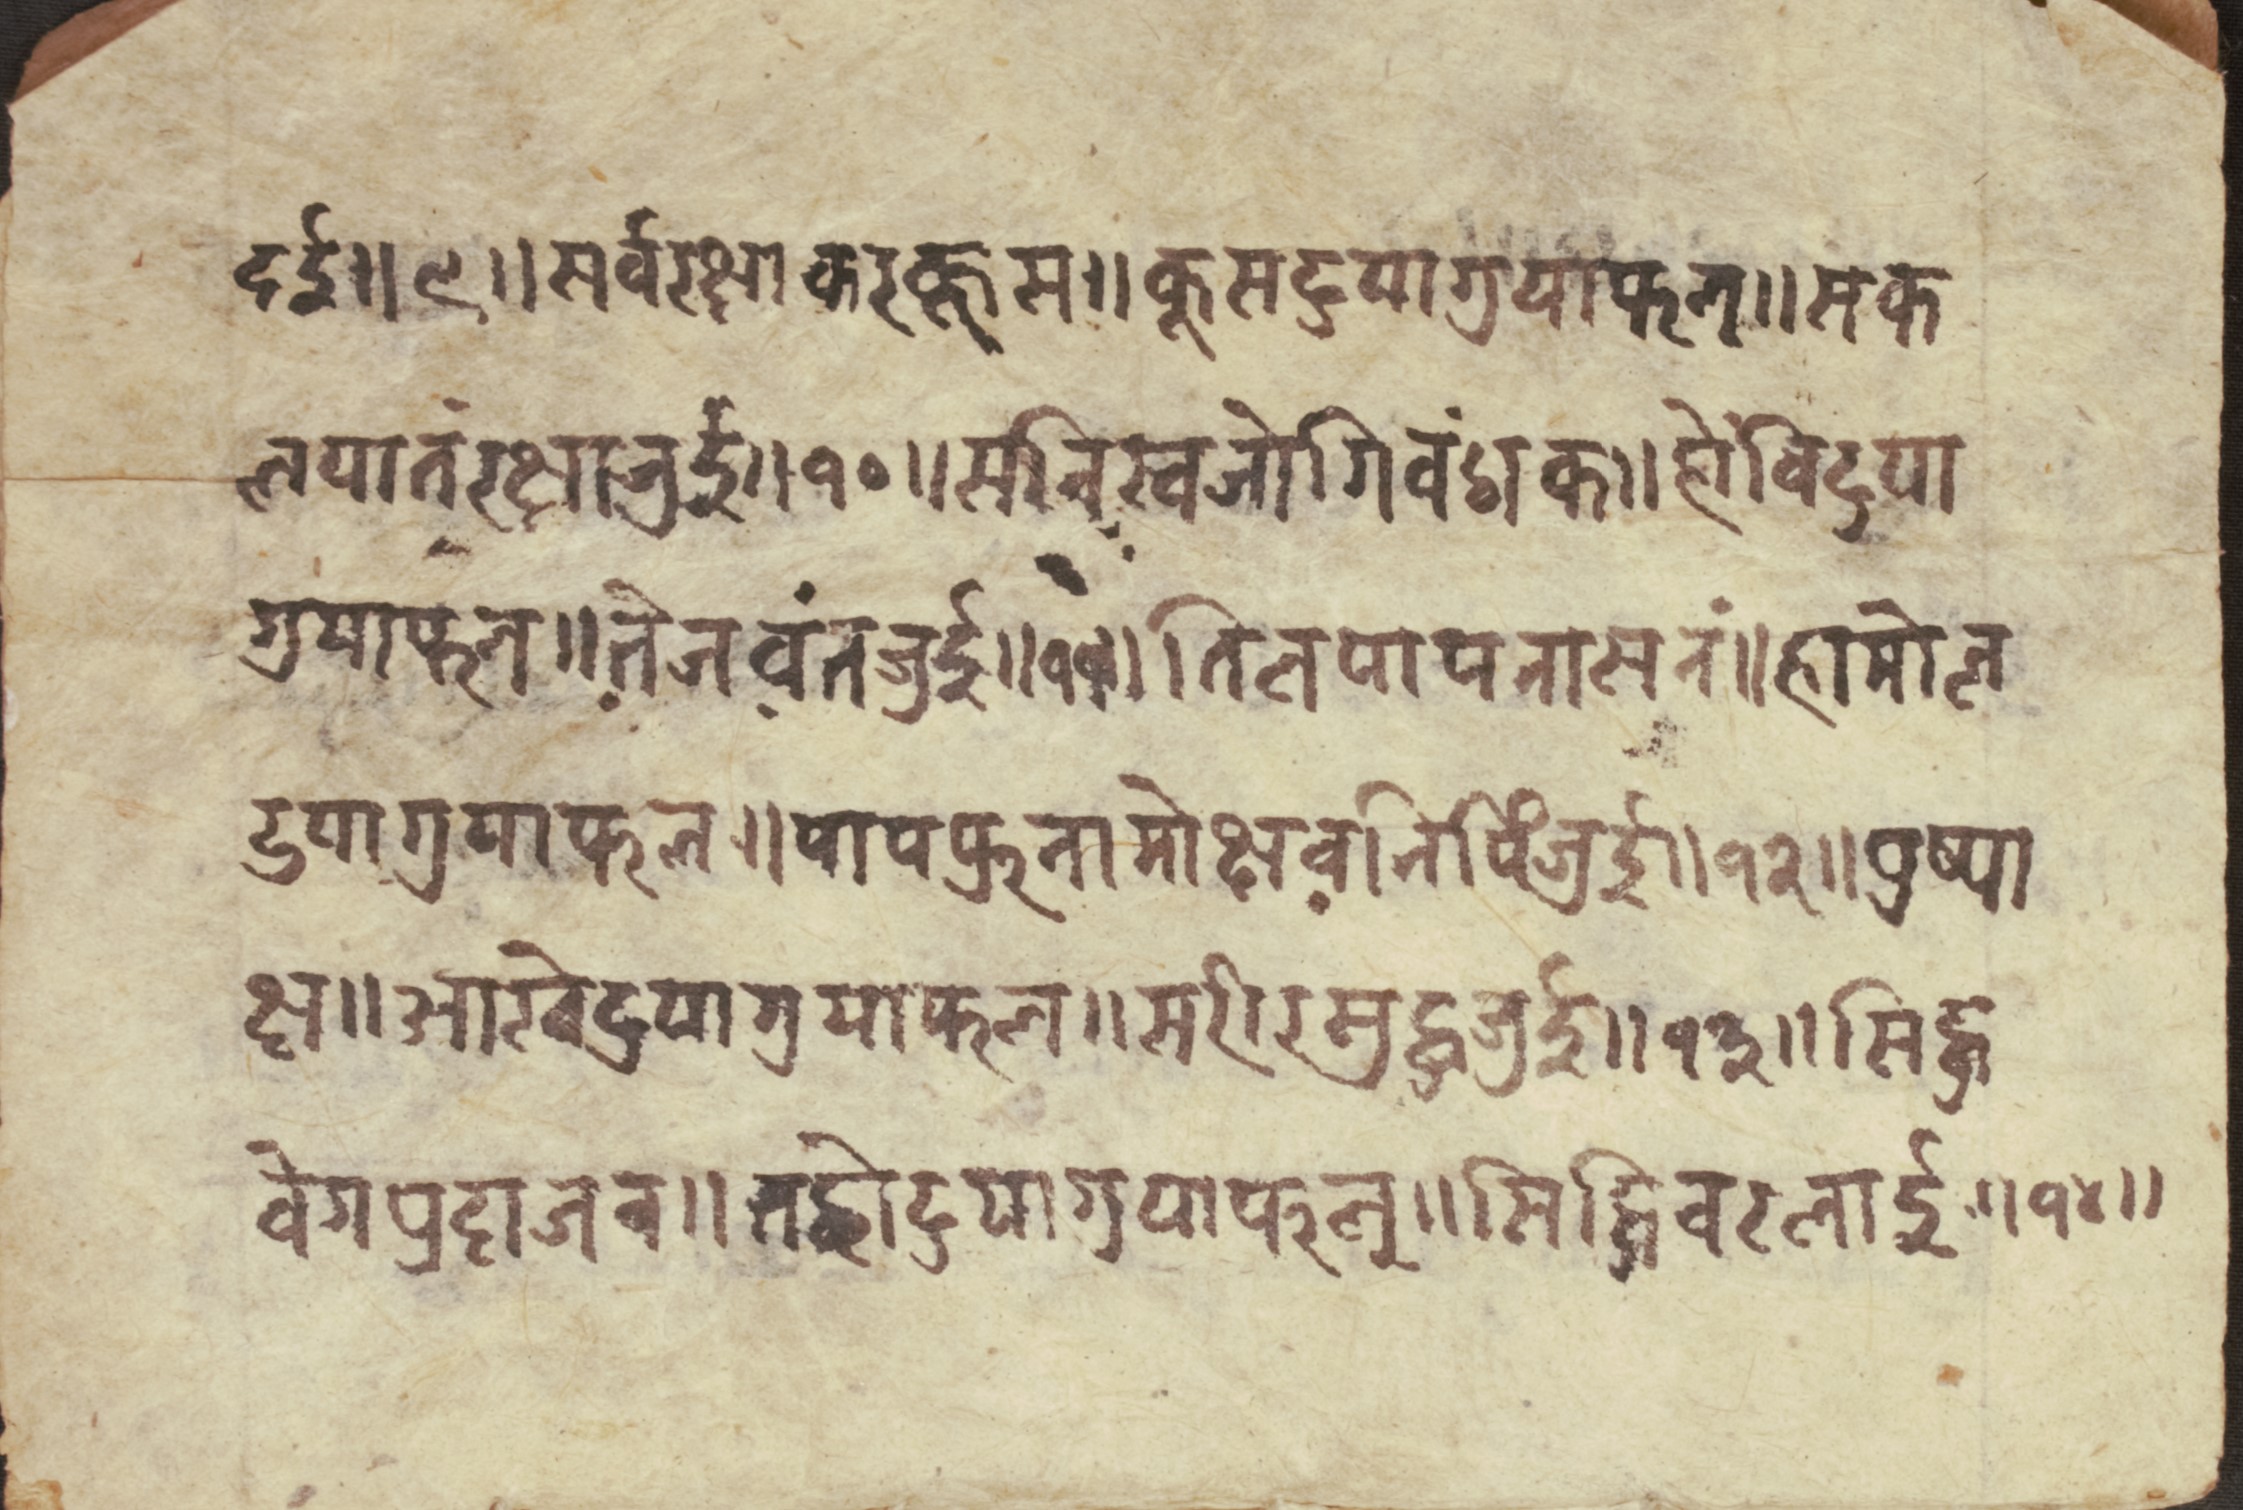 दईु॥९॥सर्वरक्षाकरकूस॥कूसदुयागुयाफल॥सक
लयातंरक्षाजुईु॥१०॥सनिस्वजोगिवंशक॥होविदुया
गुयाफल॥तेजवंतजुईु॥११॥तिलपापनासनं॥हामोल
दुयागुयाफल॥पापफुनामोक्षवनिपिंजुईु॥१२॥पुष्पा
क्ष॥आखेदुयागुयाफल॥सरीरसुद्धजुईु॥१३॥सिद्ध
वेगप्रदाजव॥तछोदुयागुयाफल॥सिद्धिवरलाईु॥१४॥